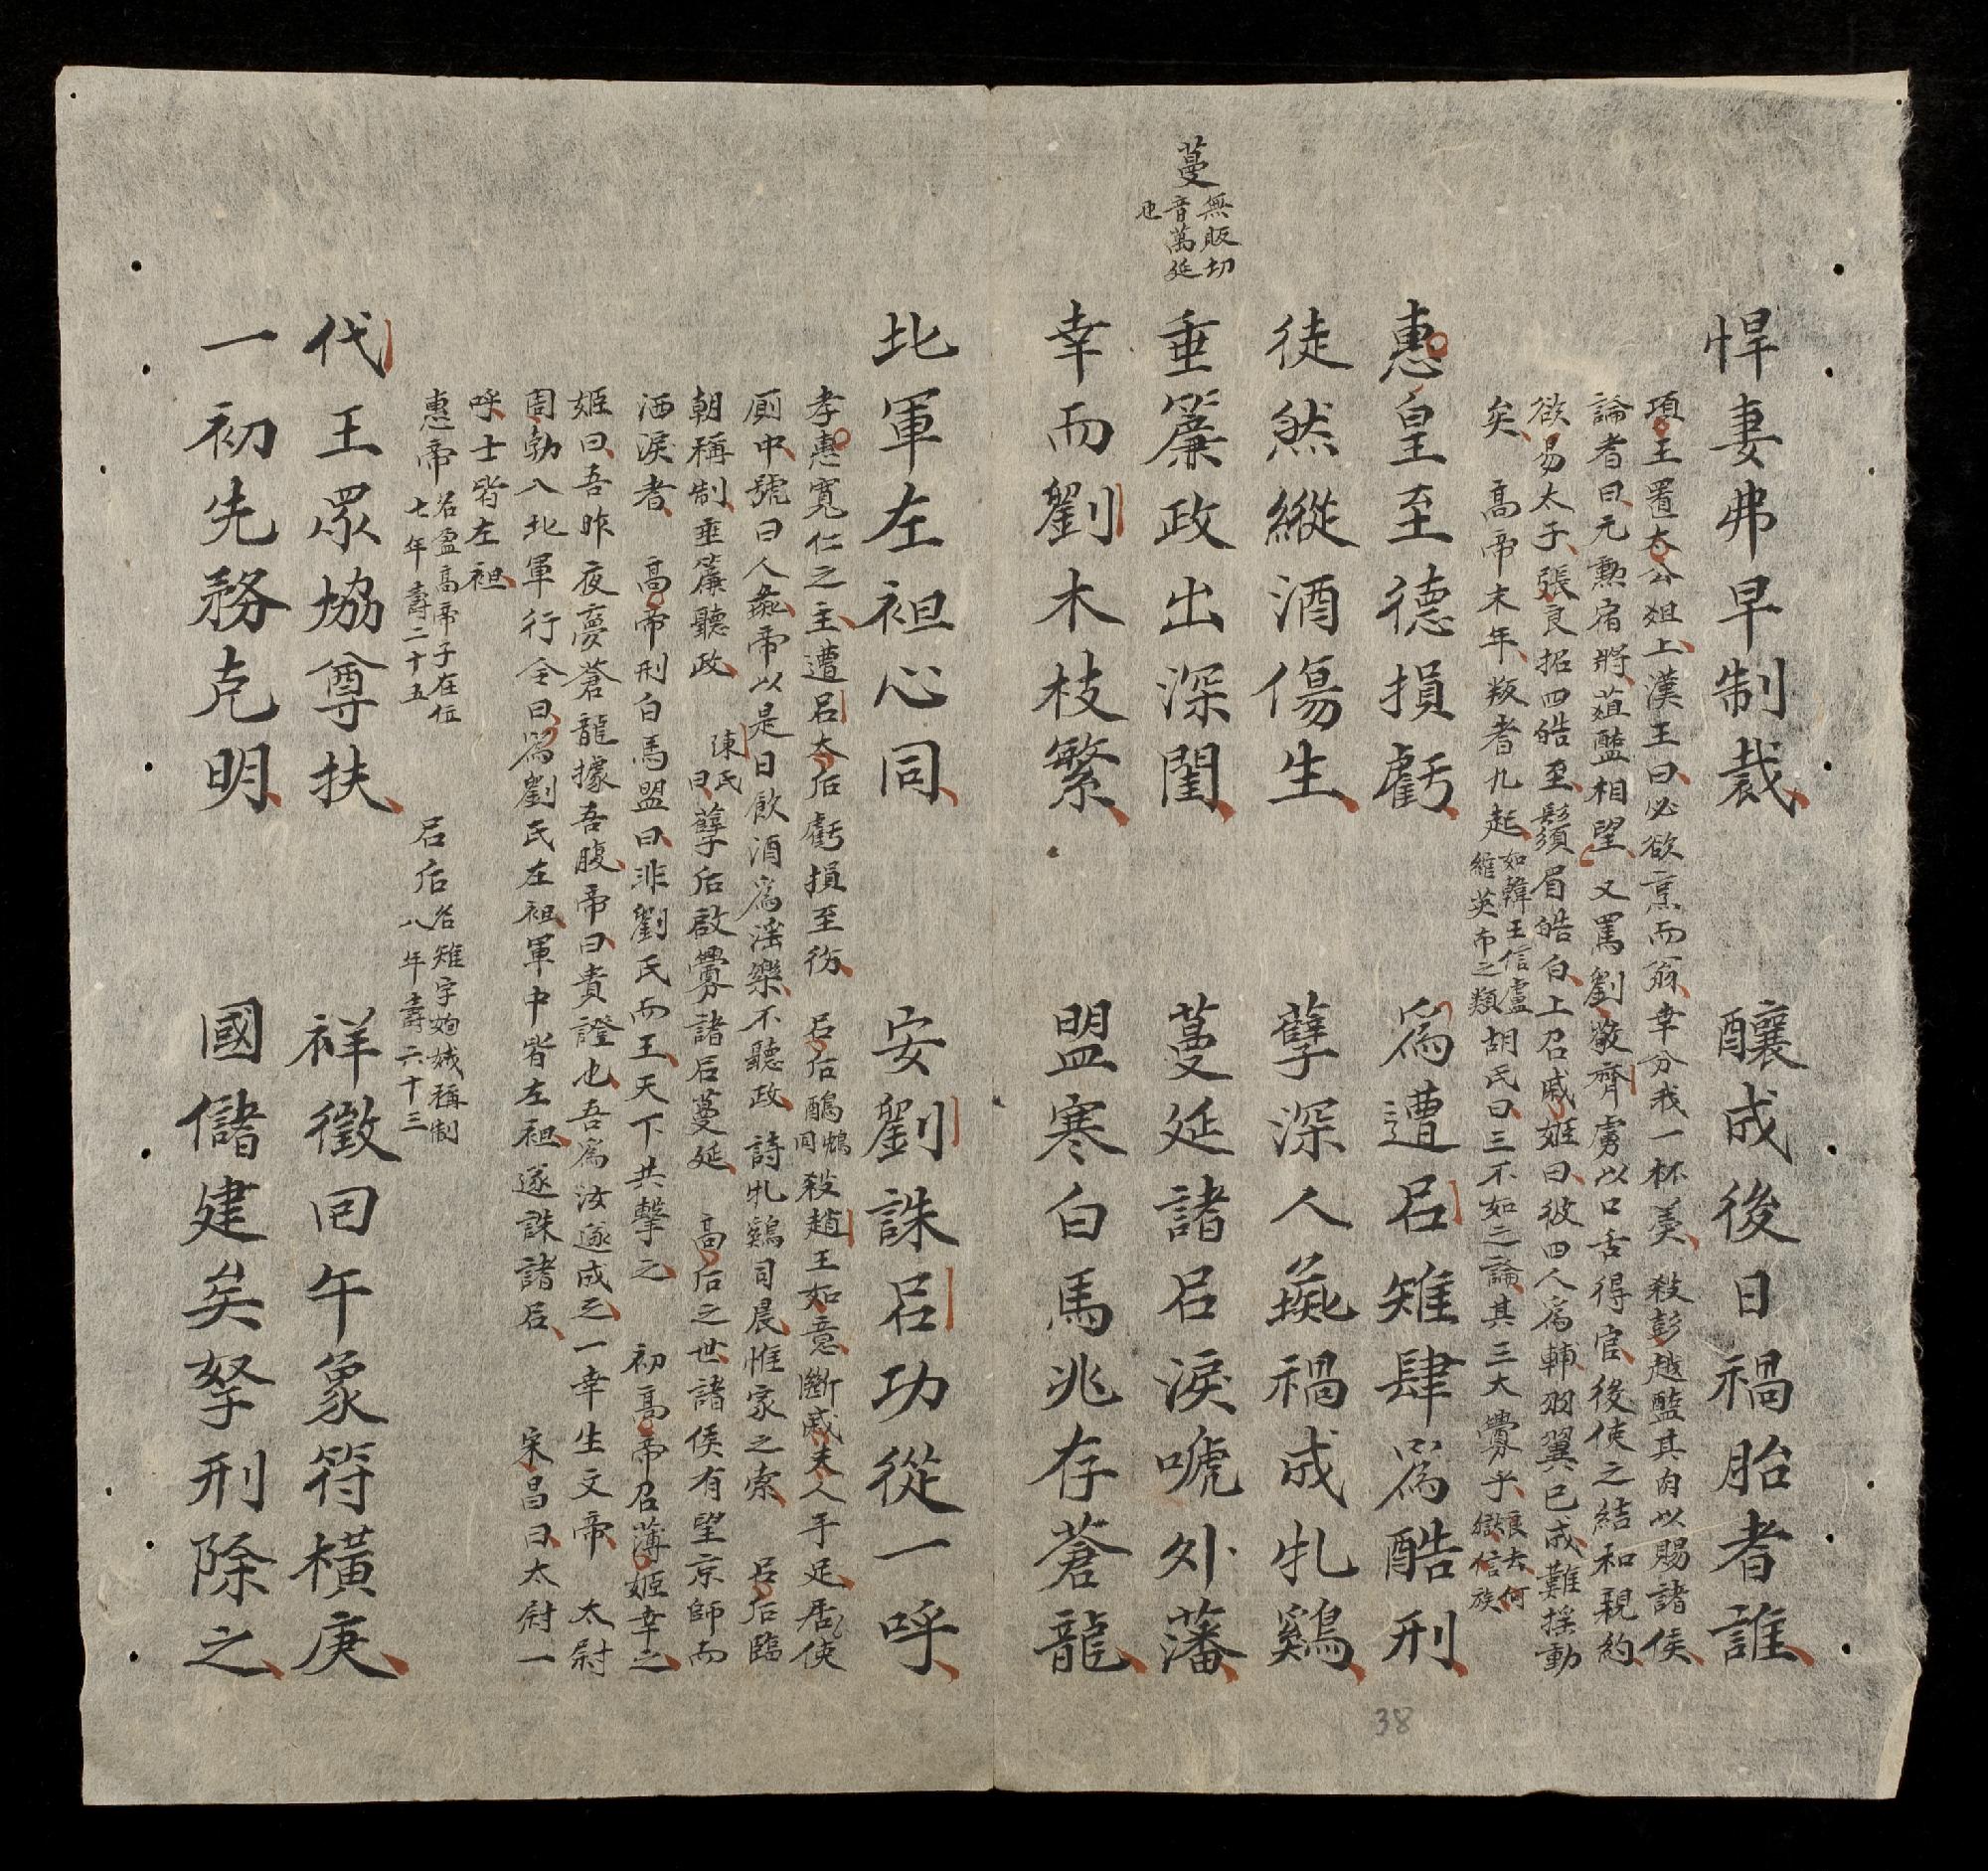 悍妻弗早制裁　釀成後日禍胎者誰
項王置太公俎上漢王曰必欲烹而翁幸分我一杯羹　殺彭越醢其肉以賜諸侯
論者曰元勲宿將葅醢相望又罵劉敬齊虜以口舌得官後使之結和親約
欲易太子張良招四皓至鬚眉皓白上召戚姬曰彼四人爲輔羽翼已成難揺動
矣　高帝末年叛者九起如韓王信盧綰英布之類胡氏曰三不如之論其三大釁乎良去何獄信族
惠皇至德損虧　爲遭呂雉肆爲酷刑
徒然縱酒傷生　孽深人彘禍成牝鷄
蔓無販切音萬延也
垂簾政出深閨　蔓延諸呂淚唬外藩
幸而劉木枝繁　盟寒白馬兆存蒼龍
北軍左袒心同　安劉誅呂功從一呼
孝惠寬仁之主遭呂太后虧損至傷　呂后酖鴆同殺趙王如意斷戚夫人手足居使
厠中號曰人彘帝以是日飲酒爲淫樂不聽政　詩牝鷄司晨惟家之索　呂后臨
朝稱制垂簾聽政　陳氏曰孽后啟釁諸呂蔓延　高后之世諸侯有望京師而
洒淚者　高帝刑白馬盟曰非劉氏而王天下共擊之　初高帝召薄姬幸之
姬曰吾昨夜夢蒼龍據吾腹帝曰貴證也吾爲汝遂成之一幸生文帝　太尉
周勃入北軍行令曰爲劉氏左袒軍中皆左袒遂誅諸呂　宋昌曰太尉一
呼士皆左袒
惠帝名盈高帝子在位七年壽二十五　呂后名雉字姁娥稱制八年壽六十三
代王眾協尊扶　祥徵囘午象符橫庚
一初先務克明　國儲建矣孥刑除之
38